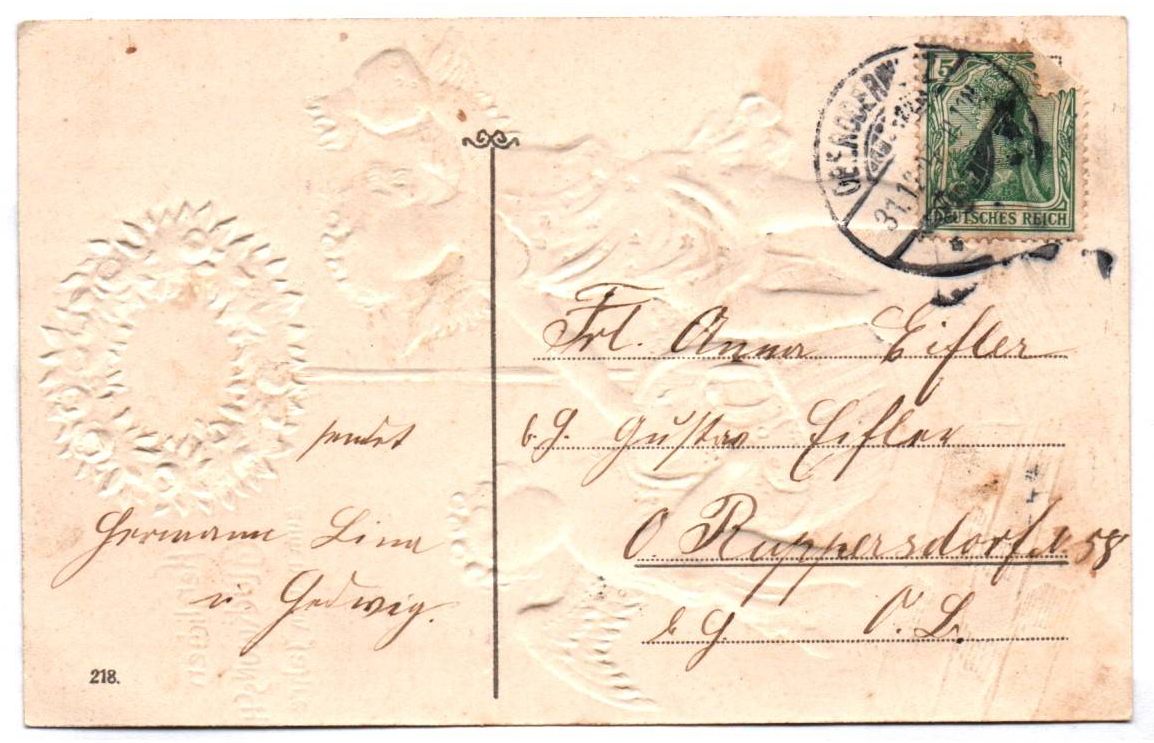 5
DEUTSCHES REICH
31.12.
Frl. Anna Eifler
b. G. Gustav Eifler
O. Ruppersdorf N 58
b G O. L.
sendet
Hermann Lina
u Hedwig.
218.